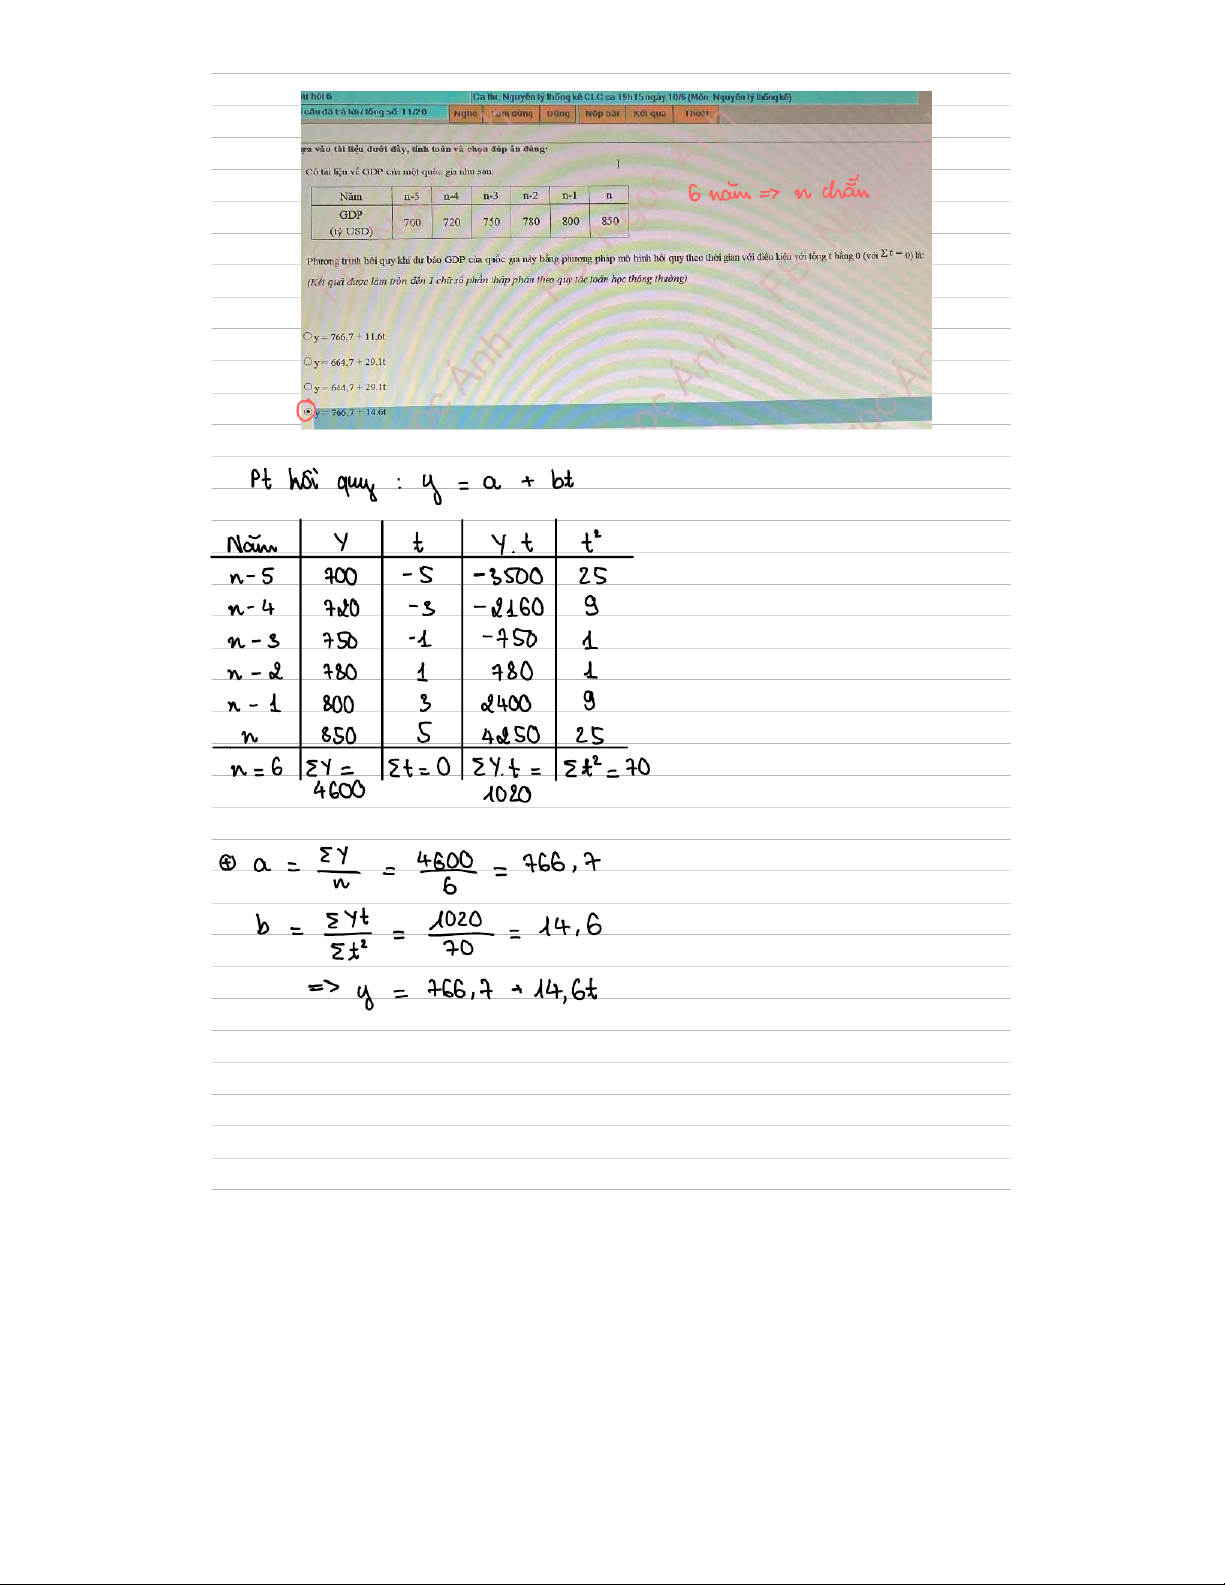 âu hỏi 6 Ca thi: Nguyên lý thống kê CLC ca 15h15 ngày 10/6 (Môn: Nguyên lý thống kê)
câu đã trả lời / tổng số: 11/20 Nghe Tạm dừng Dừng Nộp bài Kết quả Thoát
ựa vào tài liệu dưới đây, tính toán và chọn đáp án đúng:
Có tài liệu về GDP của một quốc gia như sau:
Năm n-5 n-4 n-3 n-2 n-1 n
GDP (tỷ USD) 700 720 750 780 800 850
6 năm => n chẵn
Phương trình hồi quy khi dự báo GDP của quốc gia này bằng phương pháp mô hình hồi quy theo thời gian với điều kiện với tổng t bằng 0 (với Σt = 0) là:
(Kết quả được làm tròn đến 1 chữ số phần thập phân theo quy tắc toán học thông thường)
y = 766,7 + 11,6t
y = 664,7 + 29,1t
y = 644,7 + 29,1t
y = 766,7 + 14,6t
Pt hồi quy : y = a + bt
Năm Y t Y.t t²
n-5 700 -5 -3500 25
n-4 720 -3 -2160 9
n-3 750 -1 -750 1
n-2 780 1 780 1
n-1 800 3 2400 9
n 850 5 4250 25
n=6 ΣY = 4600 Σt=0 ΣY.t = 1020 Σt²=70
⊕ a = ΣY/n = 4600/6 = 766,7
b = ΣYt/Σt² = 1020/70 = 14,6
=> y = 766,7 + 14,6t